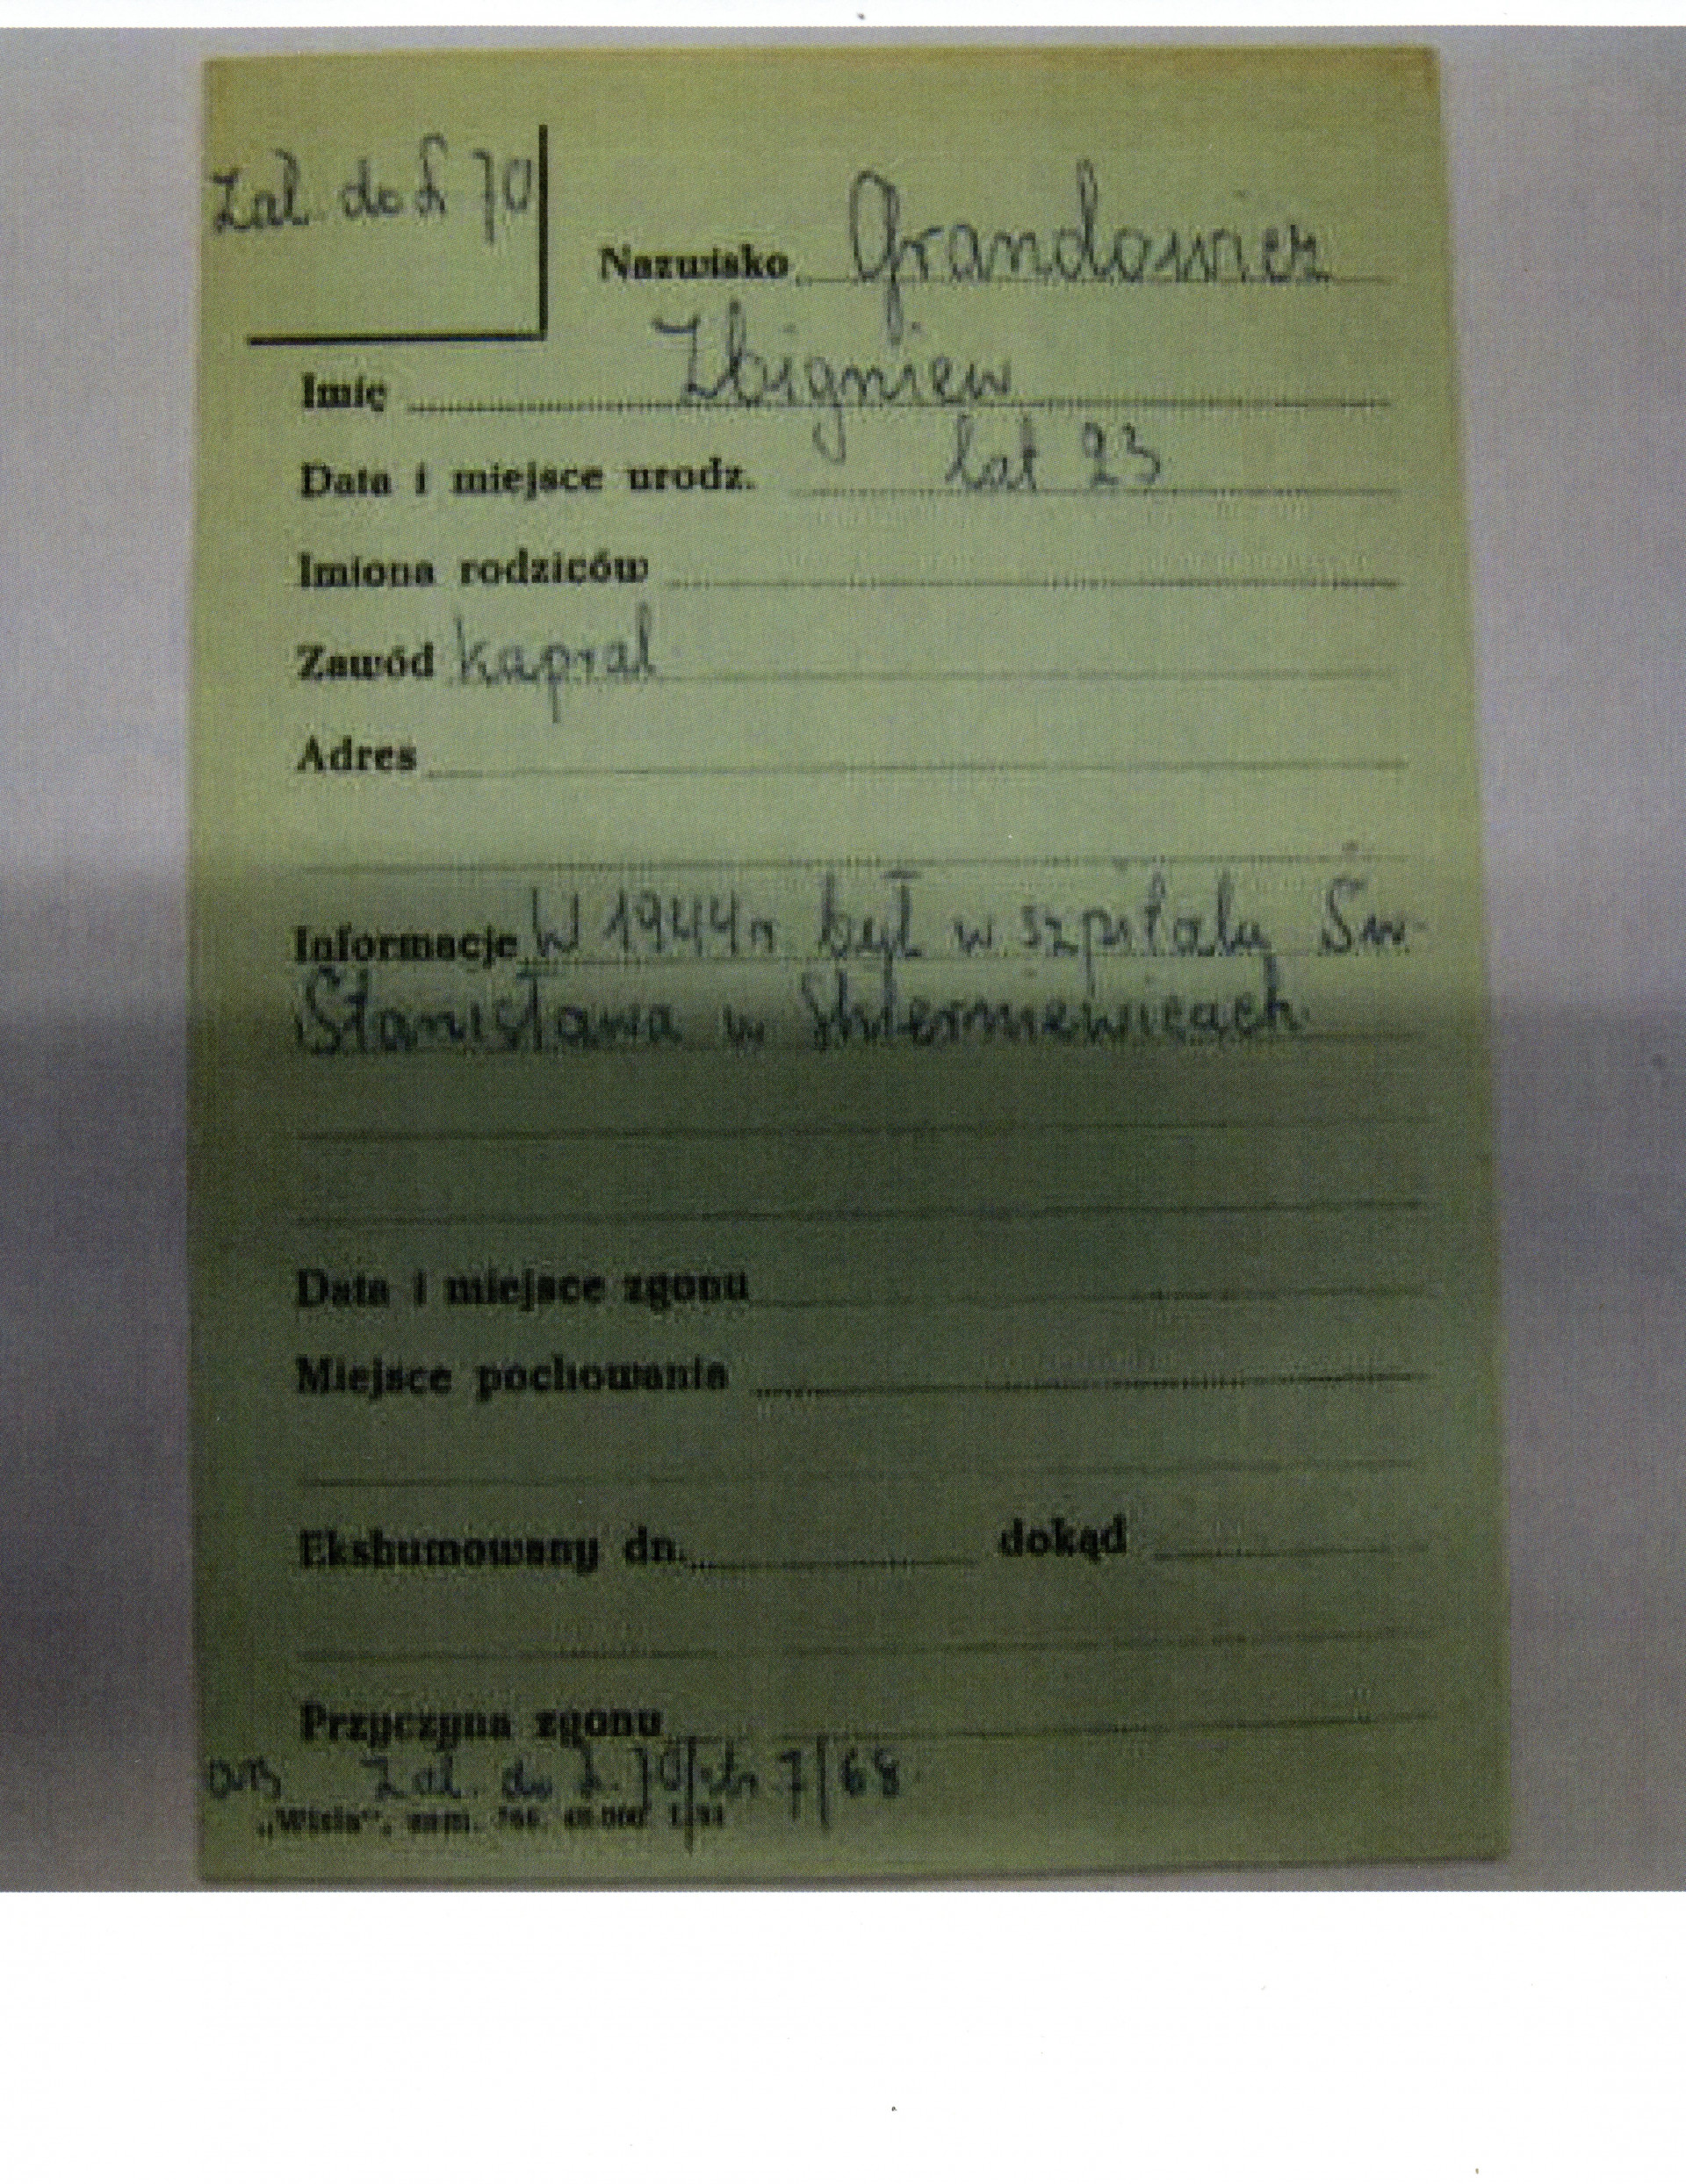 Zał. do Ł 70
Nazwisko Grandowicz
Imię Zbigniew
Data i miejsce urodz. lat 23
Imiona rodziców
Zawód kapral
Adres
Informacje W 1944 r był w szpitalu Św.
Stanisława w Skierniewicach
Data i miejsce zgonu
Miejsce pochowania
Ekshumowany dn. dokąd
Przyczyna zgonu
Zał. do Ł. 70/str 7/68
„Wisła”, zam.